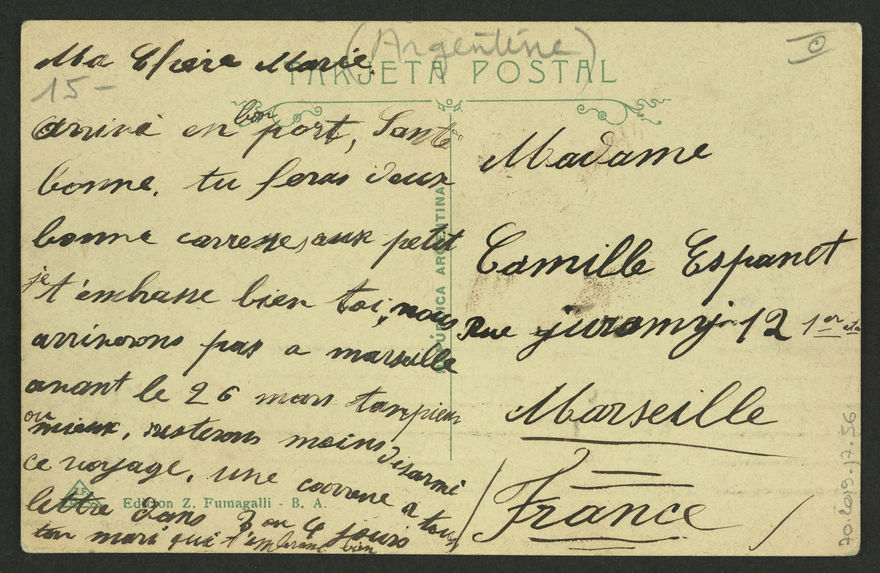 (Argentine)
TARJETA POSTAL
Ma Chere Marie
15-
arrivé en bon port, Santé
bonne. tu feras deux
bonne caresse, aux petit
je t'embrasse bien toi, nous
arriverons pas a marseille
avant le 26 mars tanpieu
ou mieux, resterons moins désarmé
ce voyage, une a tous
lettre dans 3 ou 4 jours
ton mari qui t'embrasse bien
REPÚBLICA ARGENTINA
Edicion Z. Fumagalli - B. A.
Madame
Camille Espanet
Rue juramy 12 1er
Marseille
France
70.2019.17.56